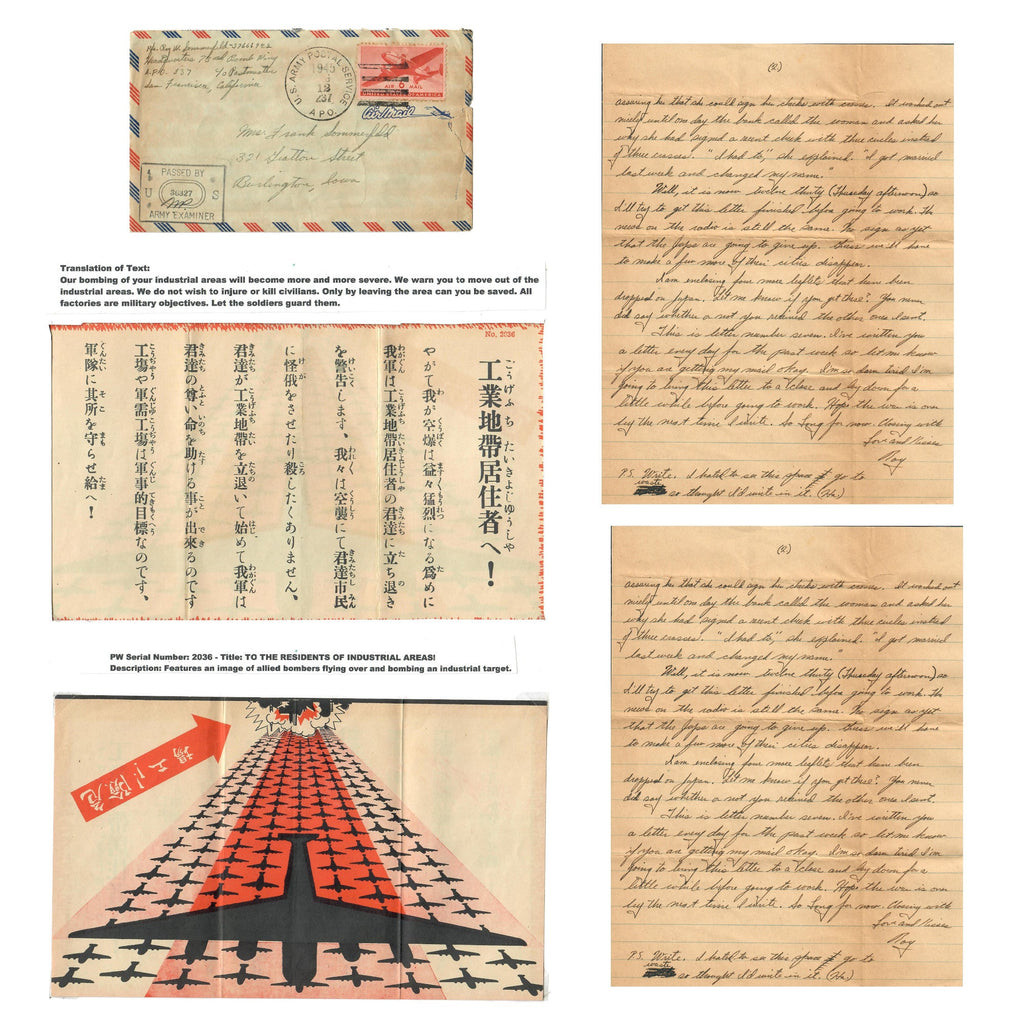 Pfc. Roy W. Sommerfeld-37666742
Headquarters 73rd Bomb Wing
A.P.O. 237 c/o Postmaster
San Francisco, California
U.S. ARMY POSTAL SERVICE
1945
12
237
A.P.O.
AIR 6¢ MAIL
UNITED STATES OF AMERICA
Air Mail
Mrs. Frank Sommerfeld
321 Street
Burlington, Iowa
PASSED BY
U S
36327
ARMY EXAMINER
Translation of Text:
Our bombing of your industrial areas will become more and more severe. We warn you to move out of the
industrial areas. We do not wish to injure or kill civilians. Only by leaving the area can you be saved. All
factories are military objectives. Let the soldiers guard them.
No. 2036
工業地帶居住者へ！
やがて我が空爆は益々猛烈になる爲めに
我軍は工業地帶居住者の君達に立ち退き
を警告します、我々は空襲にて君達市民
に怪俄をさせたり殺したくありません、
君達が工業地帶を立退いて始めて我軍は
君達の尊い命を助ける事が出來るのです
工塲や軍需工塲は軍事的目標なのです、
軍隊に其所を守らせ給へ！
PW Serial Number: 2036 - Title: TO THE RESIDENTS OF INDUSTRIAL AREAS!
Description: Features an image of allied bombers flying over and bombing an industrial target.
危險ド工塲
(2)
assuring her that she could sign her checks with crosses. It worked out
nicely until one day the bank called the woman and asked her
why she had signed a recent check with three circles instead
of three crosses. "I had to," she explained. "I got married
last week and changed my name."
Well, it is now twelve thirty (Thursday afternoon) so
I'll try to get this letter finished before going to work. The
news on the radio is still the same. No sign as yet
that the Japs are going to give up. Guess we'll have
to make a few more of their cities disappear.
I am enclosing four more leaflets that have been
dropped on Japan. Let me know if you get these? You never
did say whether or not you received the other ones I sent.
This is letter number seven. I've written you
a letter every day for the past week so let me know
if you are getting my mail okay. I'm so darn tired I'm
going to bring this letter to a close and lay down for a
little while before going to work. Hope the war is over
by the next time I write. So long for now. Closing with
Love and Kisses
Roy
P.S. Write. I hated to see this space go to
waste so thought I'd write in it. (Ha.)
(2)
assuring her that she could sign her checks with crosses. It worked out
nicely until one day the bank called the woman and asked her
why she had signed a recent check with three circles instead
of three crosses. "I had to," she explained. "I got married
last week and changed my name."
Well, it is now twelve thirty (Thursday afternoon) so
I'll try to get this letter finished before going to work. The
news on the radio is still the same. No sign as yet
that the Japs are going to give up. Guess we'll have
to make a few more of their cities disappear.
I am enclosing four more leaflets that have been
dropped on Japan. Let me know if you get these? You never
did say whether or not you received the other ones I sent.
This is letter number seven. I've written you
a letter every day for the past week so let me know
if you are getting my mail okay. I'm so darn tired I'm
going to bring this letter to a close and lay down for a
little while before going to work. Hope the war is over
by the next time I write. So long for now. Closing with
Love and Kisses
Roy
P.S. Write. I hated to see this space go to
waste so thought I'd write in it. (Ha.)